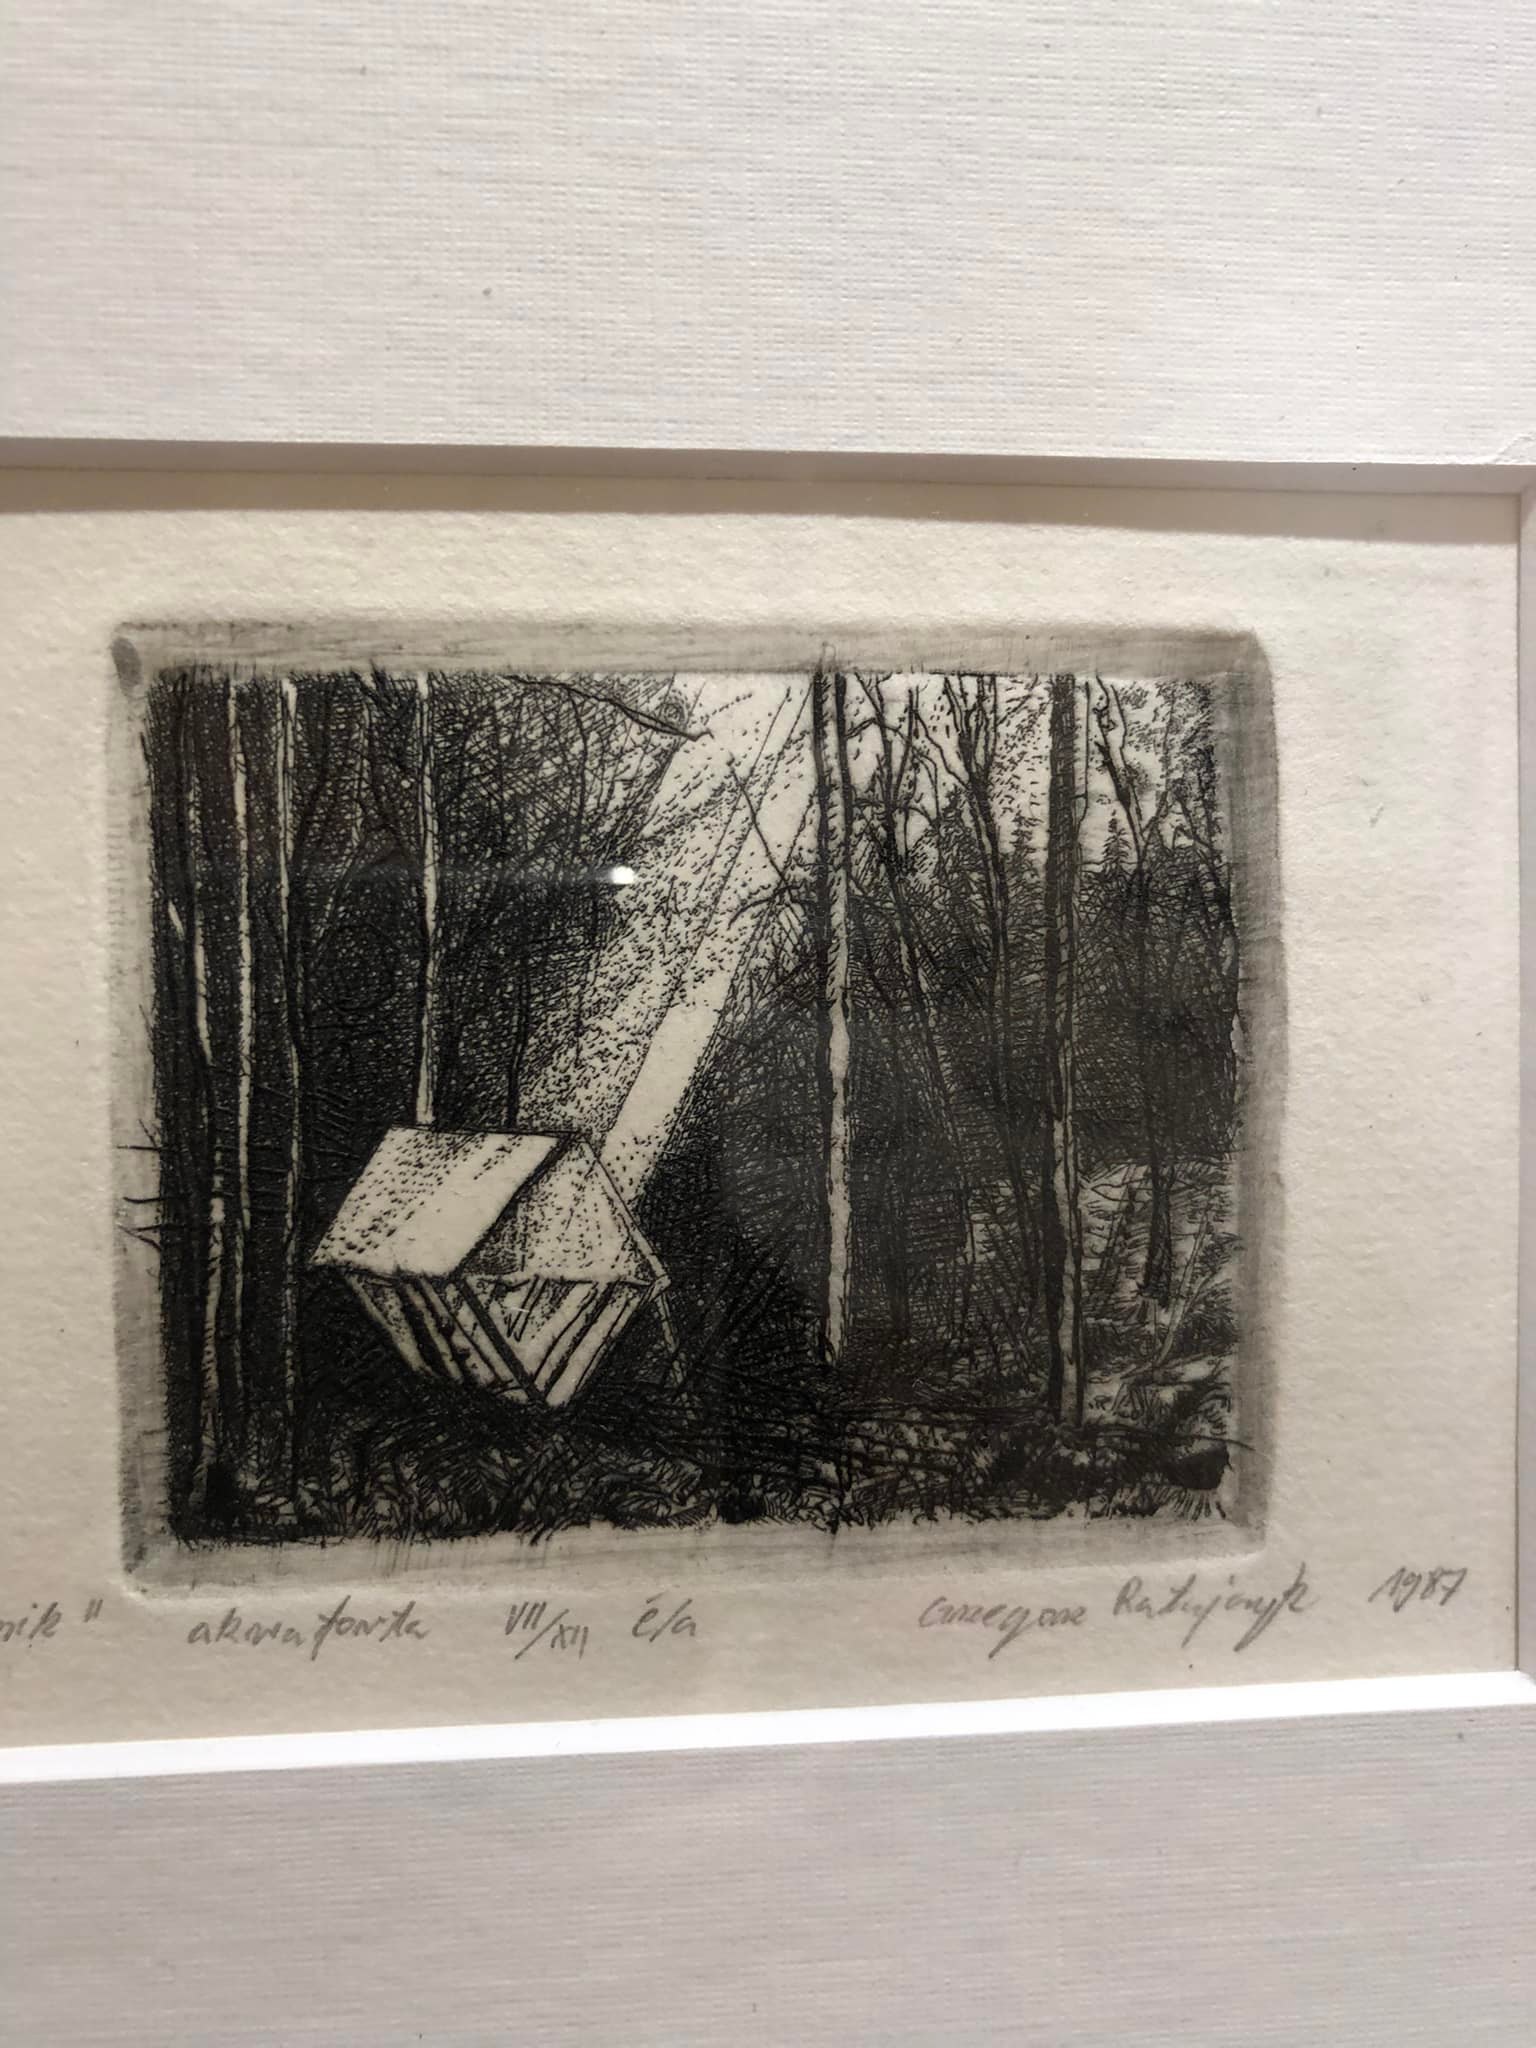 nik" akwaforta VII/XII é/a Grzegorz Ratajczyk 1987